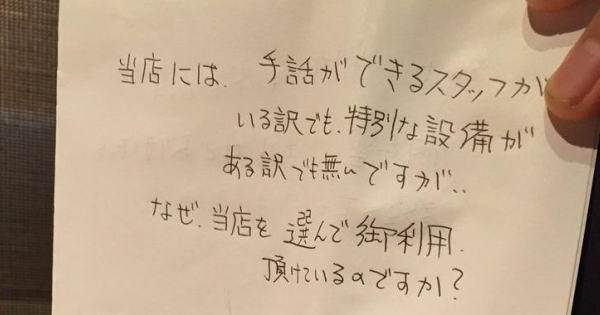 当店には、手話ができるスタッフが
いる訳でも、特別な設備が
ある訳でも無いですが、、
なぜ、当店を選んで御利用、
頂けているのですか？